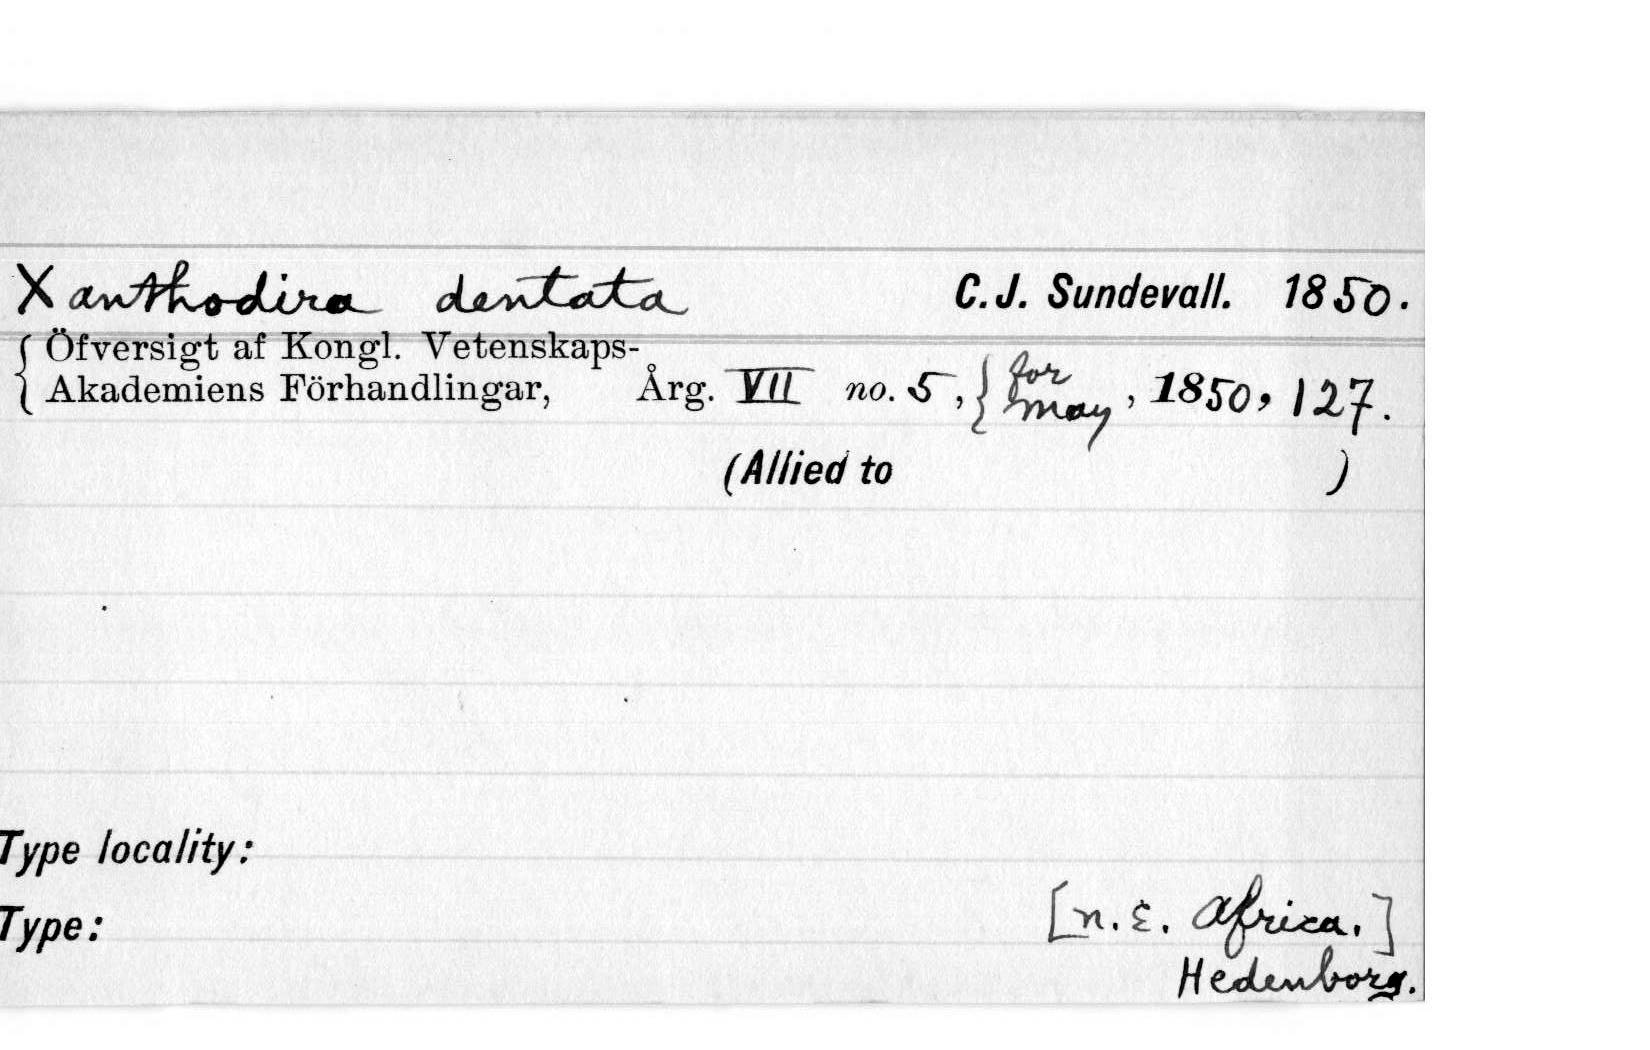 Xanthodira dentata C. J. Sundevall. 1850.
{ Öfversigt af Kongl. Vetenskaps-
Akademiens Förhandlingar, Årg. VII no. 5, { for May, 1850, 127.
(Allied to )
Type locality:
Type: [N. E. Africa.]
Hedenborg.